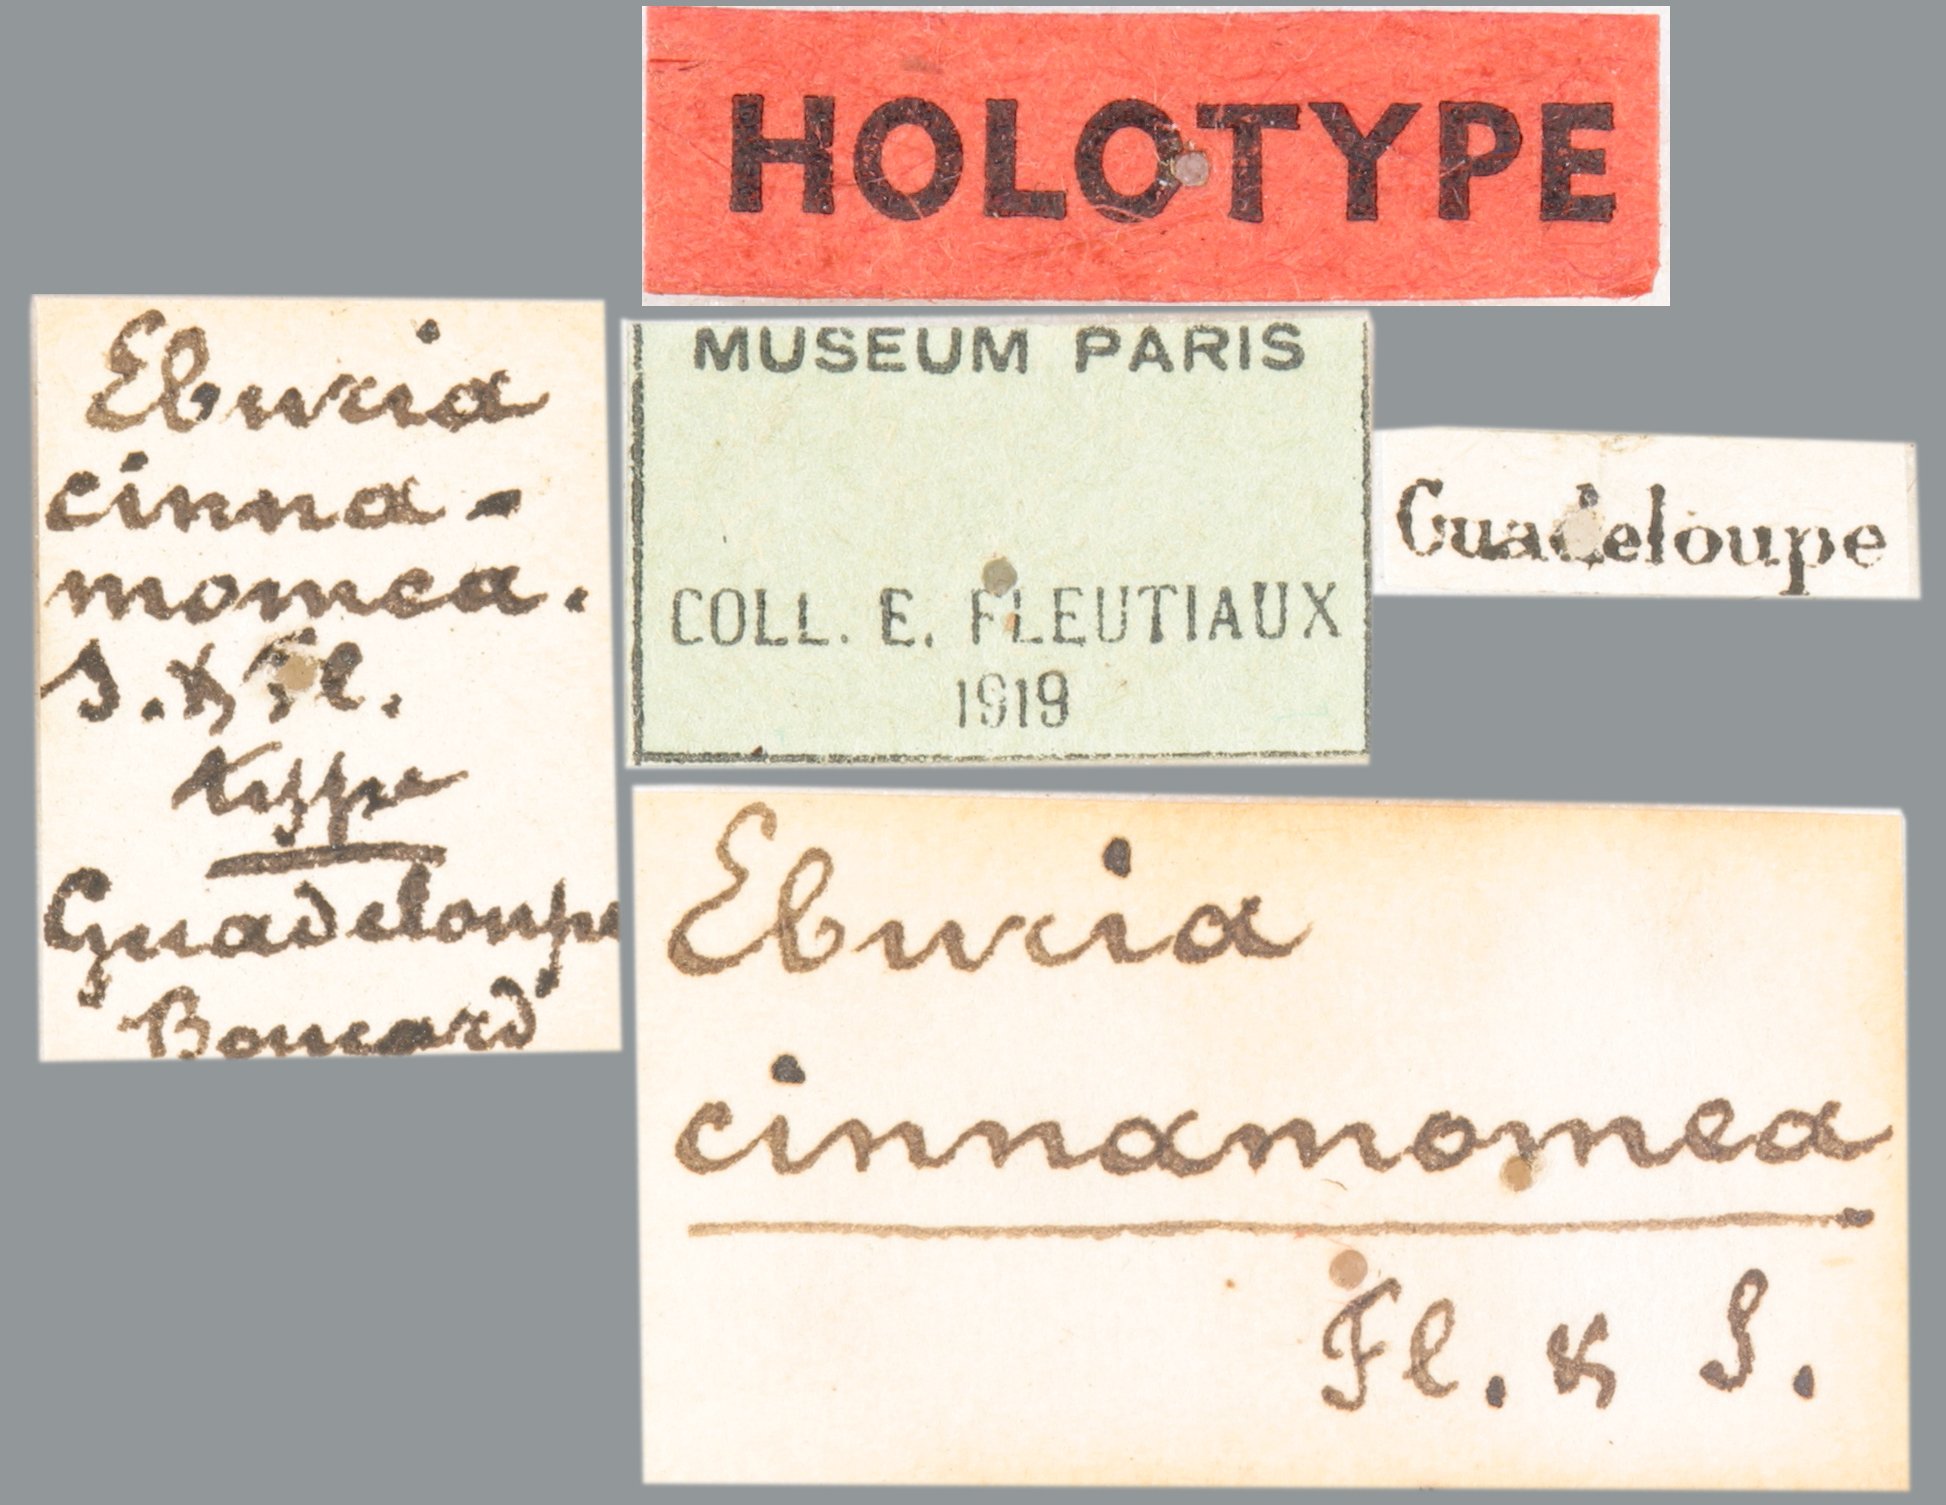 HOLOTYPE
Eburia
cinna-
momea.
S. & Fl.
type
Guadeloupe
Boucard
MUSEUM PARIS
COLL. E. FLEUTIAUX
1919
Guadeloupe
Eburia
cinnamomea
Fl. & S.